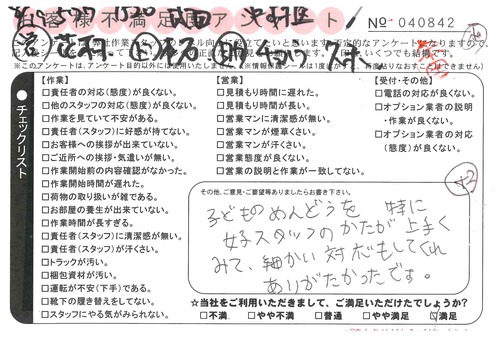 お客様不満足度アンケート
No 040842
このアンケート、アンケート目的以外には使用いたしません。
チェックリスト
【作業】
□責任者の対応(態度)が良くない。
□他のスタッフの対応(態度)が良くない。
□作業を見ていて不安がある。
□責任者(スタッフ)に好感が持てない。
□お客様への挨拶が出来ていない。
□ご近所への挨拶・気遣いが無い。
□作業開始前の内容確認がなかった。
□作業開始時間が遅れた。
□荷物の取り扱いが雑である。
□お部屋の養生が出来ていない。
□作業時間が長すぎる。
□責任者(スタッフ)に清潔感が無い。
□責任者(スタッフ)が汗くさい。
□トラックが汚い。
□梱包資材が汚い。
□運転が不安(下手)である。
□靴下の履き替えをしてない。
□スタッフにやる気がみられない。
【営業】
□見積もり時間に遅れた。
□見積もり時間が長い。
□営業マンに清潔感が無い。
□営業マンが煙草くさい。
□営業マンが汗くさい。
□営業態度が良くない。
□営業の説明と作業が一致してない。
【受付・その他】
□電話の対応が良くない。
□オプション業者の説明
・作業が良くない。
□オプション業者の対応
(態度)が良くない。
その他、ご意見・ご要望等ありましたらお書き下さい。
子どものめんどうを 特に
女子スタッフのかたが上手く
みて、細かい対応もしてくれ
ありがたかったです。
☆当社をご利用いただきまして、ご満足いただけたでしょうか?
□不満 □やや不満 □普通 □やや満足 □満足